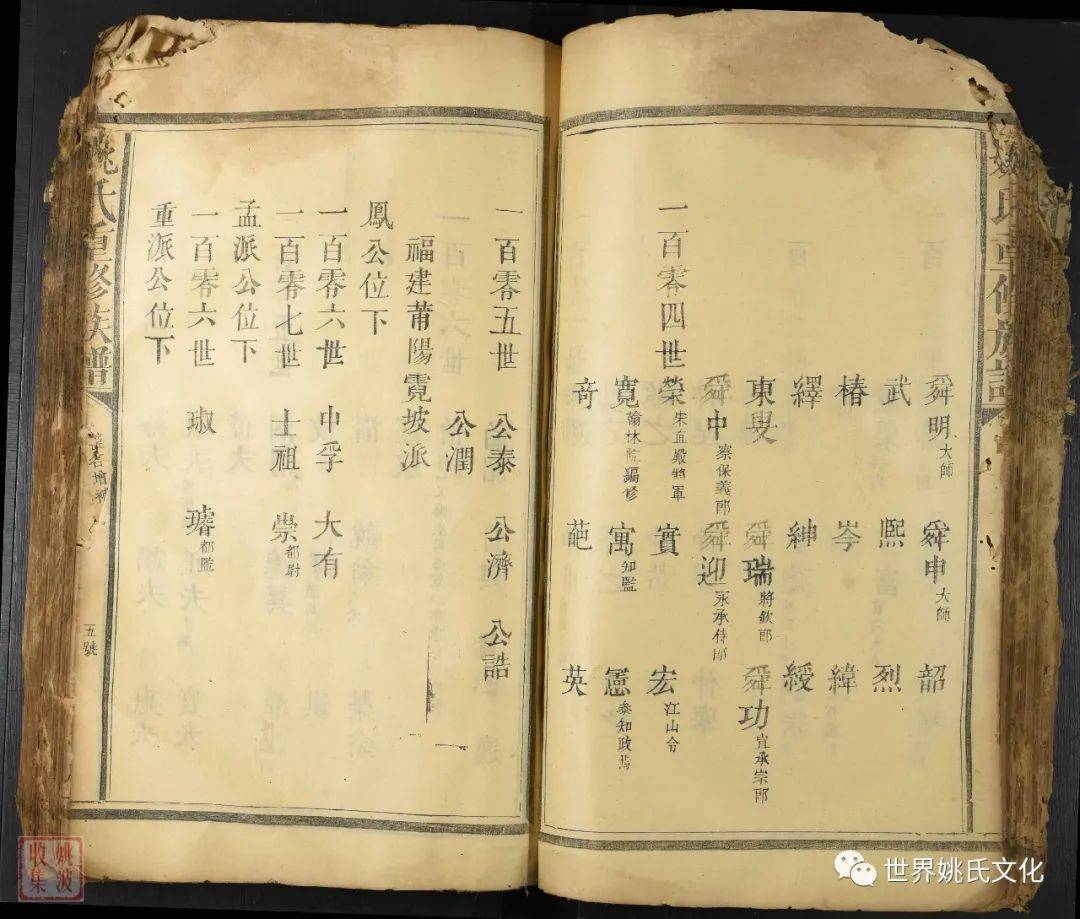 姚氏重修族譜
舜明大師 舜申大師 韶
武 熙 烈
椿 岑 緯
繹 紳 綬
東叟 舜瑞將欽郎 舜功宣承宗郎
舜中保義郎 舜迎永承侍郎
一百零四世 榮朱直殿將軍 實 宏江山令
寬翰林院編修 寓知監 憲泰知政
奇 葩 英
一百零五世 公泰 公濟 公誥
公潤
福建莆陽霓坡派
鳳公位下
一百零六世 中孚 大有
一百零七世 士祖 崇都尉
孟派公位下
一百零六世 琡 璿都監
重派公位下
姚氏重修族譜
五號
姚波
收集
世界姚氏文化